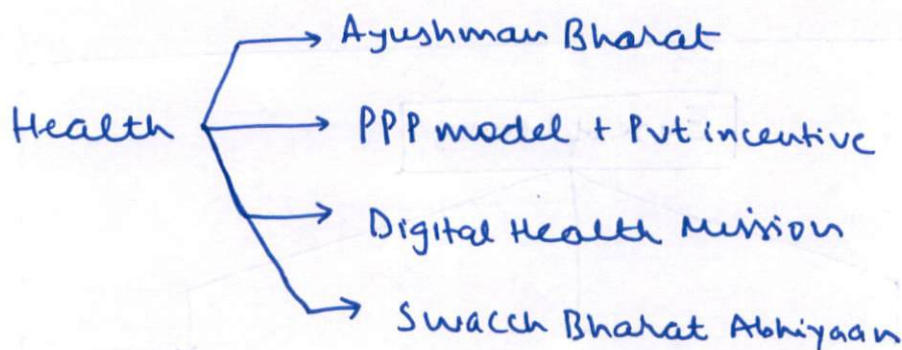 Ayushman Bharat
Health
PPP model + Pvt incentive
Digital Health Mission
Swacch Bharat Abhiyaan